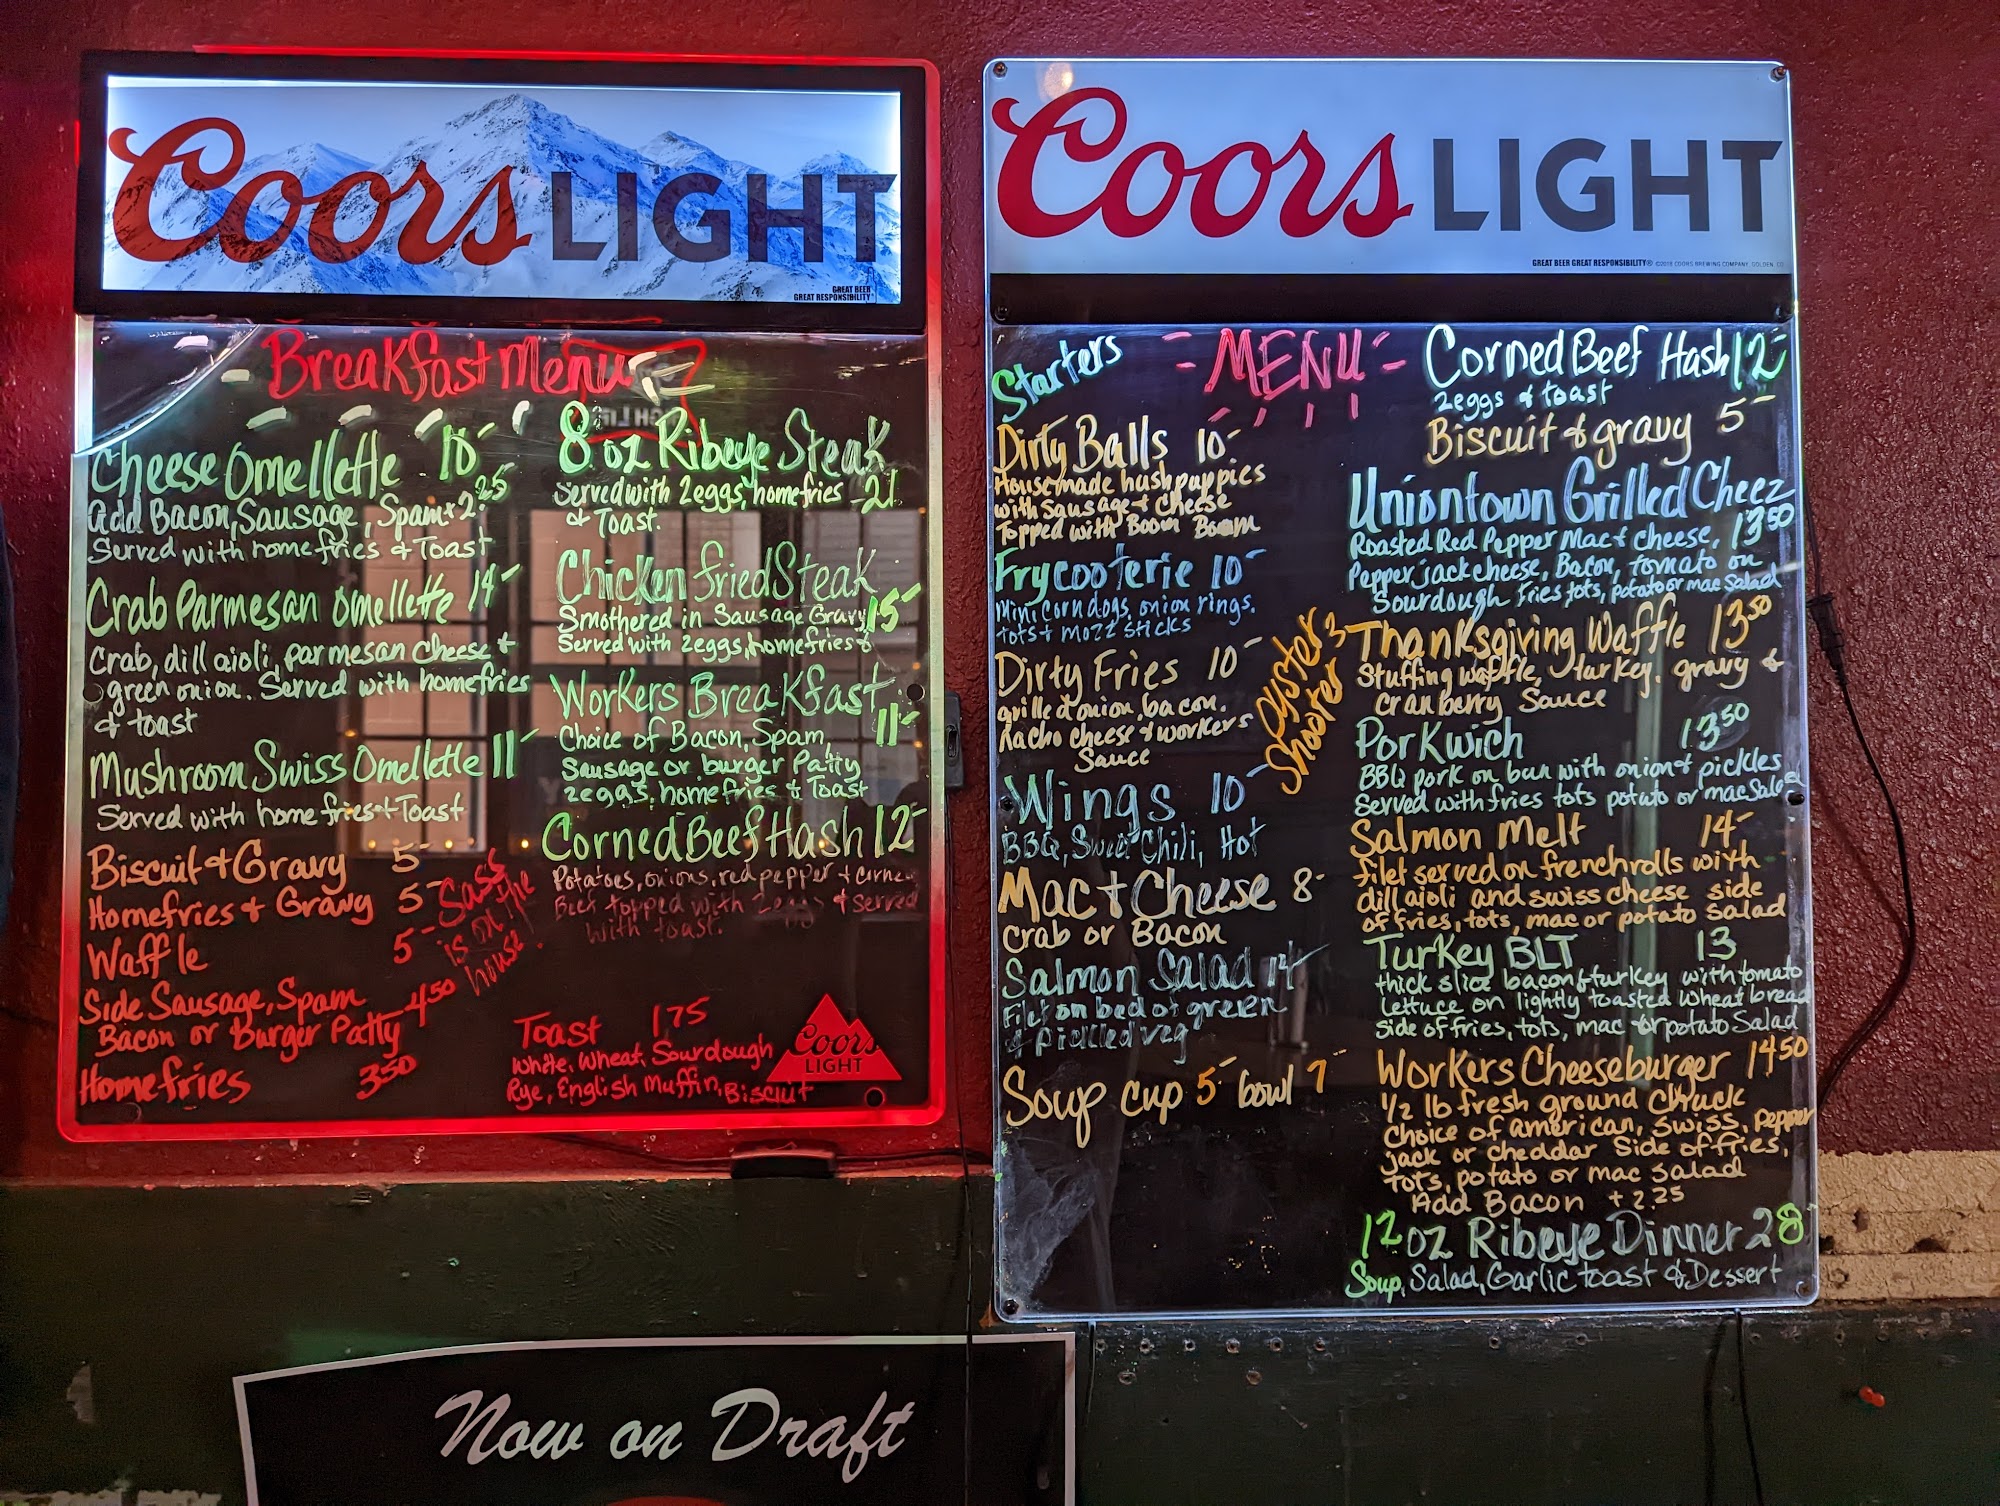 Coors LIGHT
GREAT BEER
GREAT RESPONSIBILITY
Breakfast Menu
Cheese Omellette 10-
Add Bacon, Sausage, Spam + 2.25
Served with home fries & Toast
Crab Parmesan Omellette 14-
Crab, dill aioli, parmesan cheese &
green onion. Served with homefries
& toast
Mushroom Swiss Omellette 11-
Served with home fries + Toast
Biscuit & Gravy 5-
Homefries & Gravy 5-
Waffle 5-
Sass
is on the
house.
Side Sausage, Spam
Bacon or Burger Patty 4.50
Homefries 3.50
8 oz Ribeye Steak
Served with 2eggs, homefries -21
& Toast.
Chicken fried Steak
Smothered in Sausage Gravy 15-
Served with 2eggs, homefries &
Workers Breakfast
11-
Choice of Bacon, Spam,
Sausage or burger Patty
2eggs, homefries & Toast
Corned Beef Hash 12-
Potatoes, onions, red pepper + corned
Beef topped with 2eggs & served
with toast.
Toast 1.75
White, Wheat, Sourdough
Rye, English Muffin, Biscuit
Coors
LIGHT
Coors LIGHT
GREAT BEER GREAT RESPONSIBILITY® ©2018 COORS BREWING COMPANY, GOLDEN, CO
MENU
Starters
Dirty Balls 10-
Housemade hushpuppies
with Sausage + cheese
Topped with Boom Boom
Frycooterie 10-
Mini Corndogs, onion rings,
tots + mozz sticks
Dirty Fries 10-
grilled onion, bacon,
nacho cheese & workers
Sauce
Oyster 3-
Shooter
Wings 10-
BBQ, Sweet Chili, Hot
Mac & Cheese 8-
Crab or Bacon
Salmon Salad 14-
Filet on bed of green
& pickled veg
Soup cup 5- bowl 7-
Corned Beef Hash 12-
2eggs & toast
Biscuit & gravy 5-
Uniontown Grilled Cheez
Roasted Red Pepper Mac & cheese, 13.50
Pepperjack cheese, Bacon, tomato on
Sourdough fries tots, potato or mac salad
Thanksgiving Waffle 13.50
Stuffing waffle, turkey, gravy &
cranberry Sauce
PorKwich 13.50
BBQ pork on bun with onion & pickles
Served with fries tots potato or mac Salad
Salmon Melt 14-
filet served on french rolls with
dill aioli and swiss cheese side
of fries, tots, mac or potato salad
Turkey BLT 13
thick slice bacon & turkey with tomato
lettuce on lightly toasted wheat bread
side of fries, tots, mac or potato Salad
Workers Cheeseburger 14.50
1/2 lb fresh ground chuck
Choice of american, swiss, pepper
jack or cheddar Side of fries,
tots, potato or mac salad
Add Bacon +2.25
12 oz Ribeye Dinner 28
Soup, Salad, Garlic toast & Dessert
Now on Draft